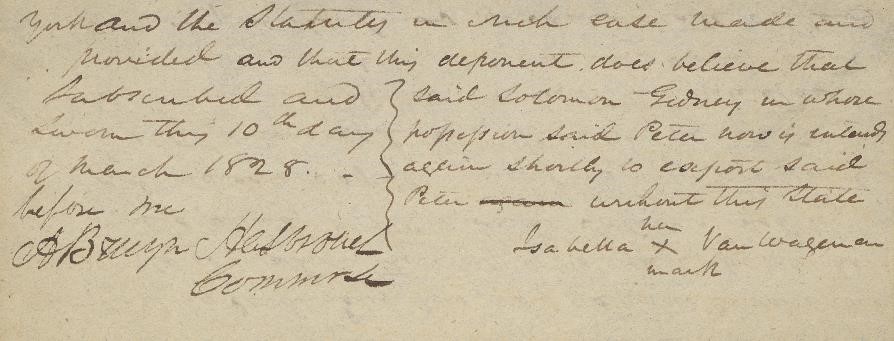 York and the Statutes in such case made and
provided and that this deponent does believe that
said Solomon Gedney in whose
possession said Peter now is intends
again shortly to export said
Peter without this State
Isabella her X mark Van Wagenan
Subscribed and
Sworn this 10th day
of March 1828.
before me
A Bruyn Hasbrouck
Commr